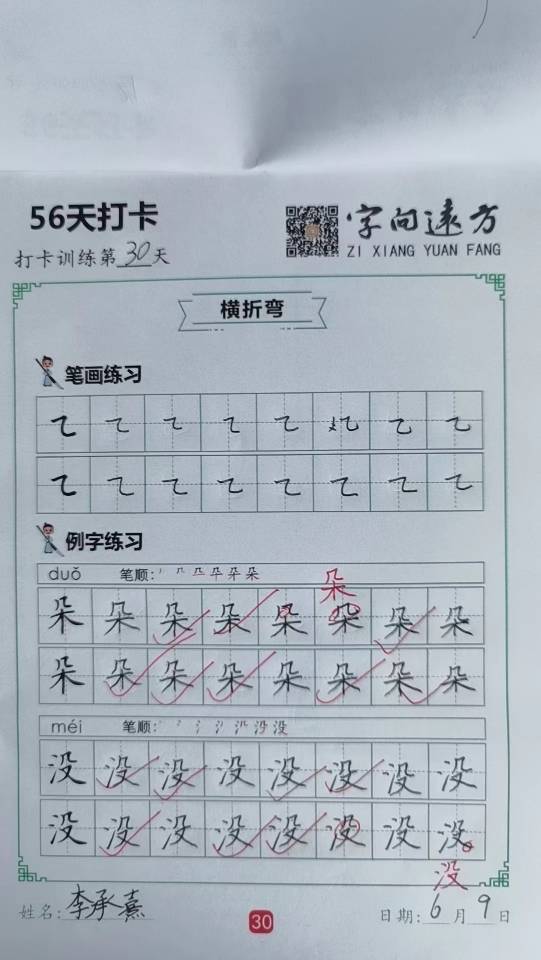 56天打卡
字向远方
ZI XIANG YUAN FANG
打卡训练第30天
横折弯
笔画练习
例字练习
duǒ 笔顺:
朵
朵朵朵朵朵朵朵朵
朵朵朵朵朵朵朵朵
méi 笔顺:
没没没没没没没没
没没没没没没没没
没
姓名:李承熹
30
日期:6月9日